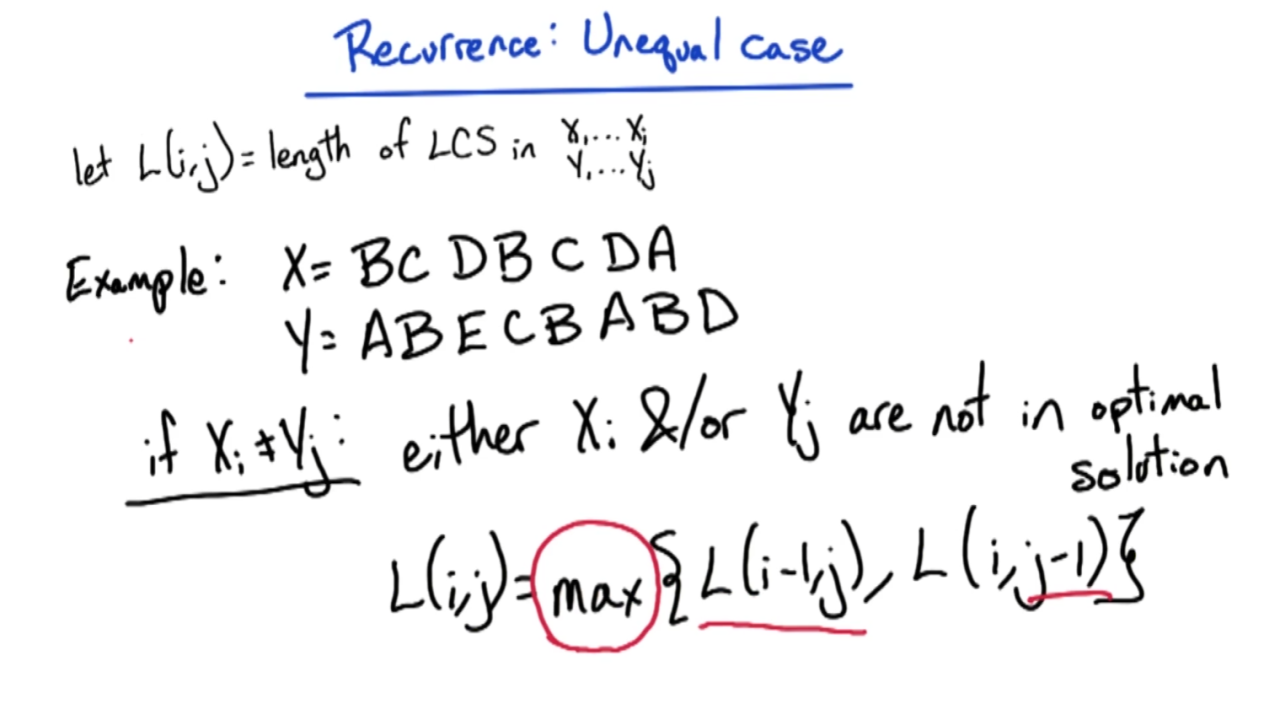 Recurrence: Unequal case
let L(i,j) = length of LCS in X₁...Xᵢ
Y₁...Yⱼ
Example: X = BCDBCDA
Y = ABECBABD
if Xᵢ ≠ Yⱼ: either Xᵢ &/or Yⱼ are not in optimal
solution
L(i,j) = max { L(i-1,j), L(i,j-1) }